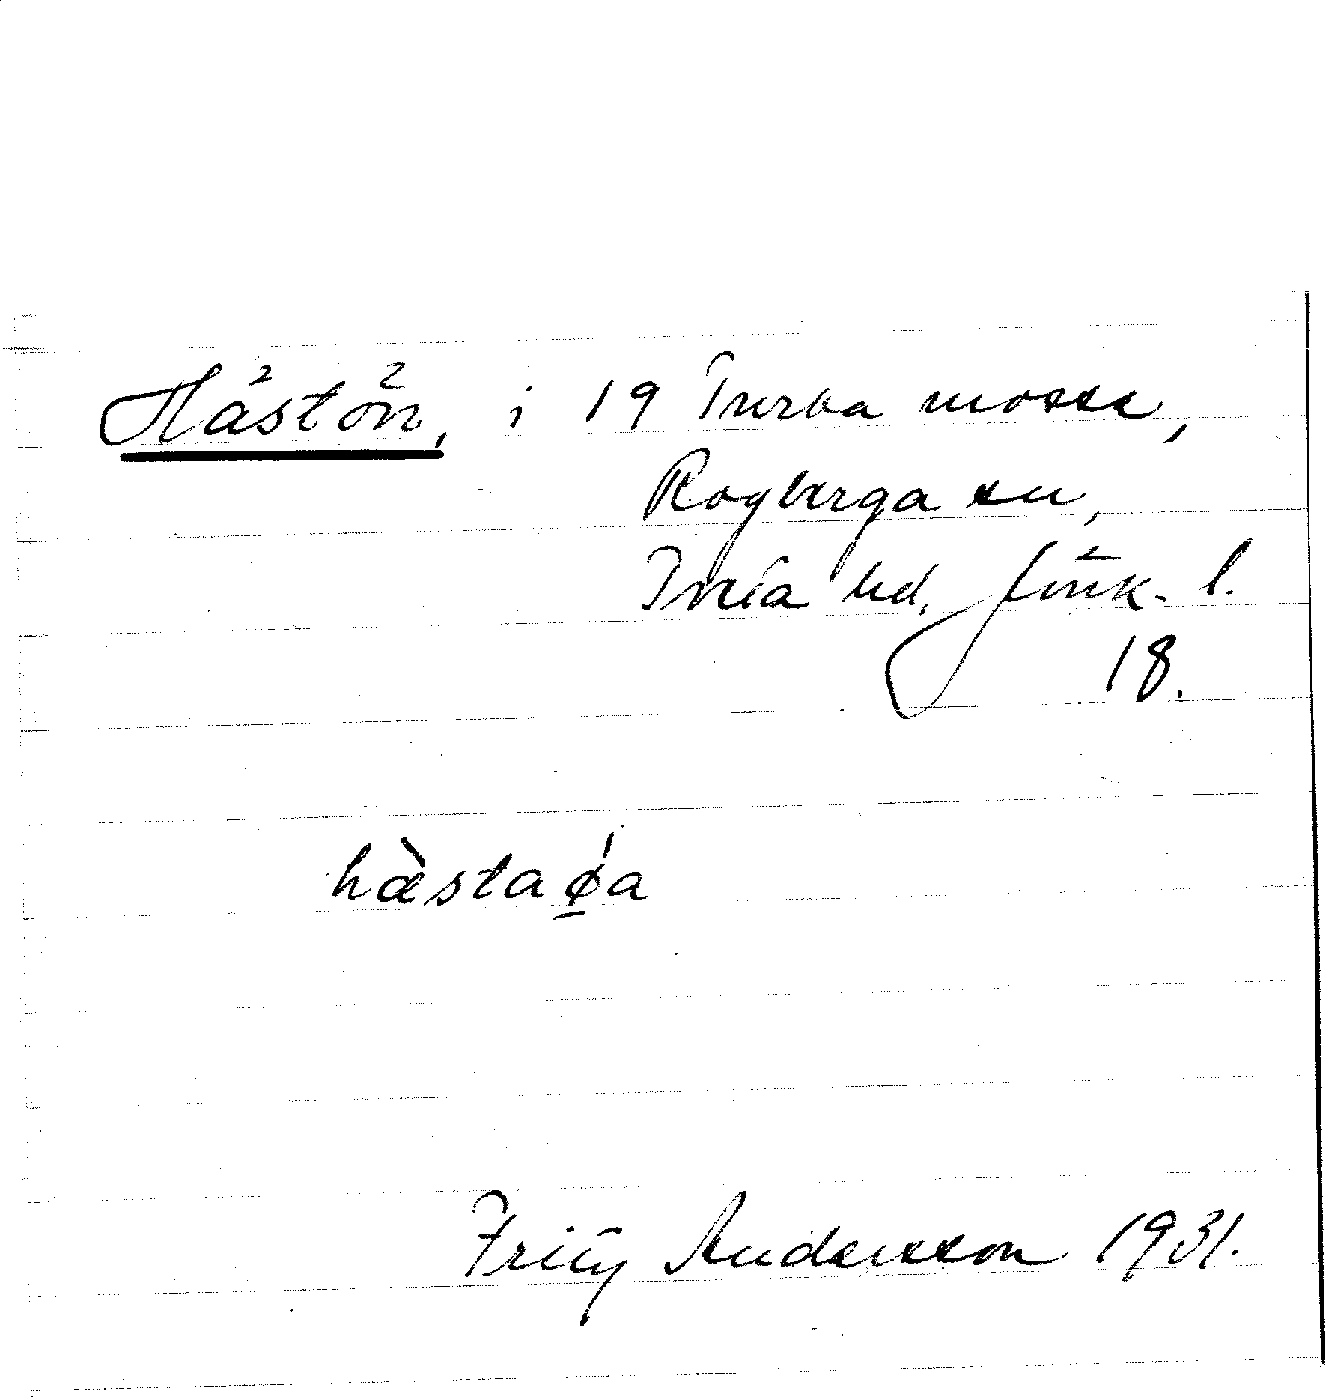 Hästön, i 19 Turba mosse,
Rogberga sn,
Tveta hd, Jönk. l.
18.
hæ̀staǿ̱a
Fritz Andersson 1931.